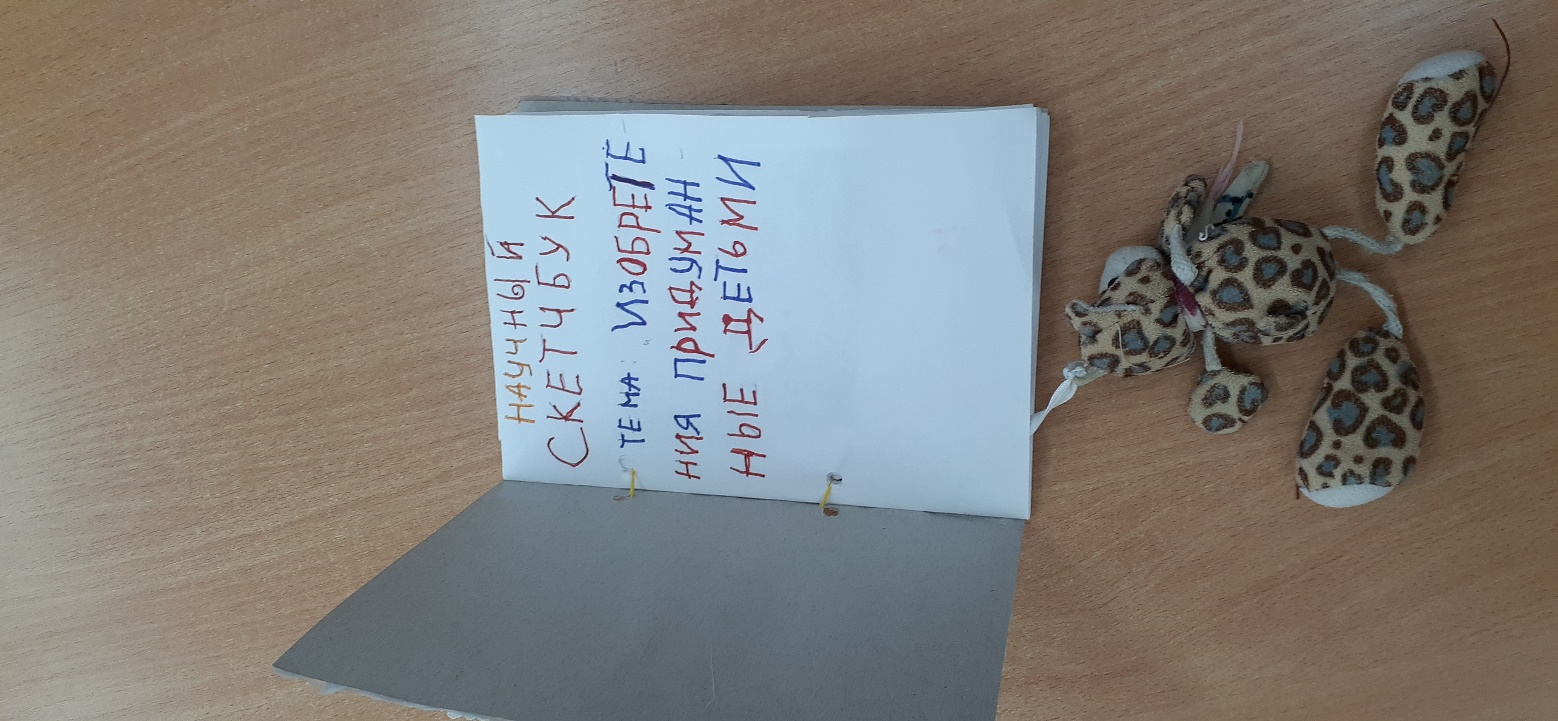 НАУЧНЫЙ
СКЕТЧБУК
ТЕМА: ИЗОБРЕТЕ
НИЯ ПРИДУМАН
НЫЕ ДЕТЬМИ